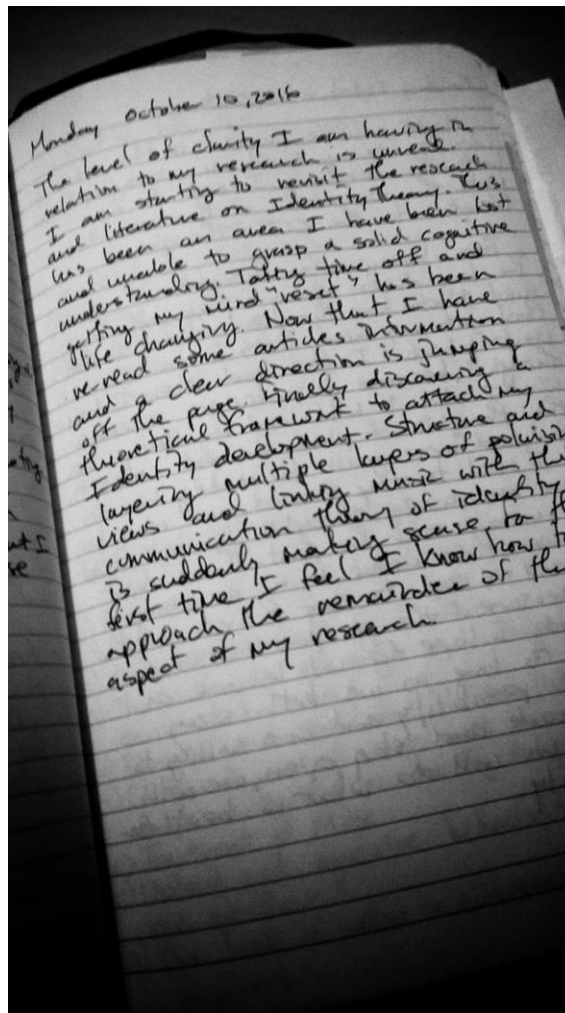 Monday October 10, 2016
The level of clarity I am having in
relation to my research is unreal.
I am starting to revisit the research
and literature on Identity Theory. This
has been an area I have been lost
and unable to grasp a solid cognitive
understanding. Taking time off and
getting my mind "reset" has been
life changing. Now that I have
re-read some articles information
and a clear direction is jumping
off the page. Finally discovering a
theoretical framework to attach my
Identity development. Structure and
layering multiple layers of
views and linking music with the
communication theory of identity
is suddenly making sense. For the
first time I feel I know how to
approach the remainder of the
aspect of my research.